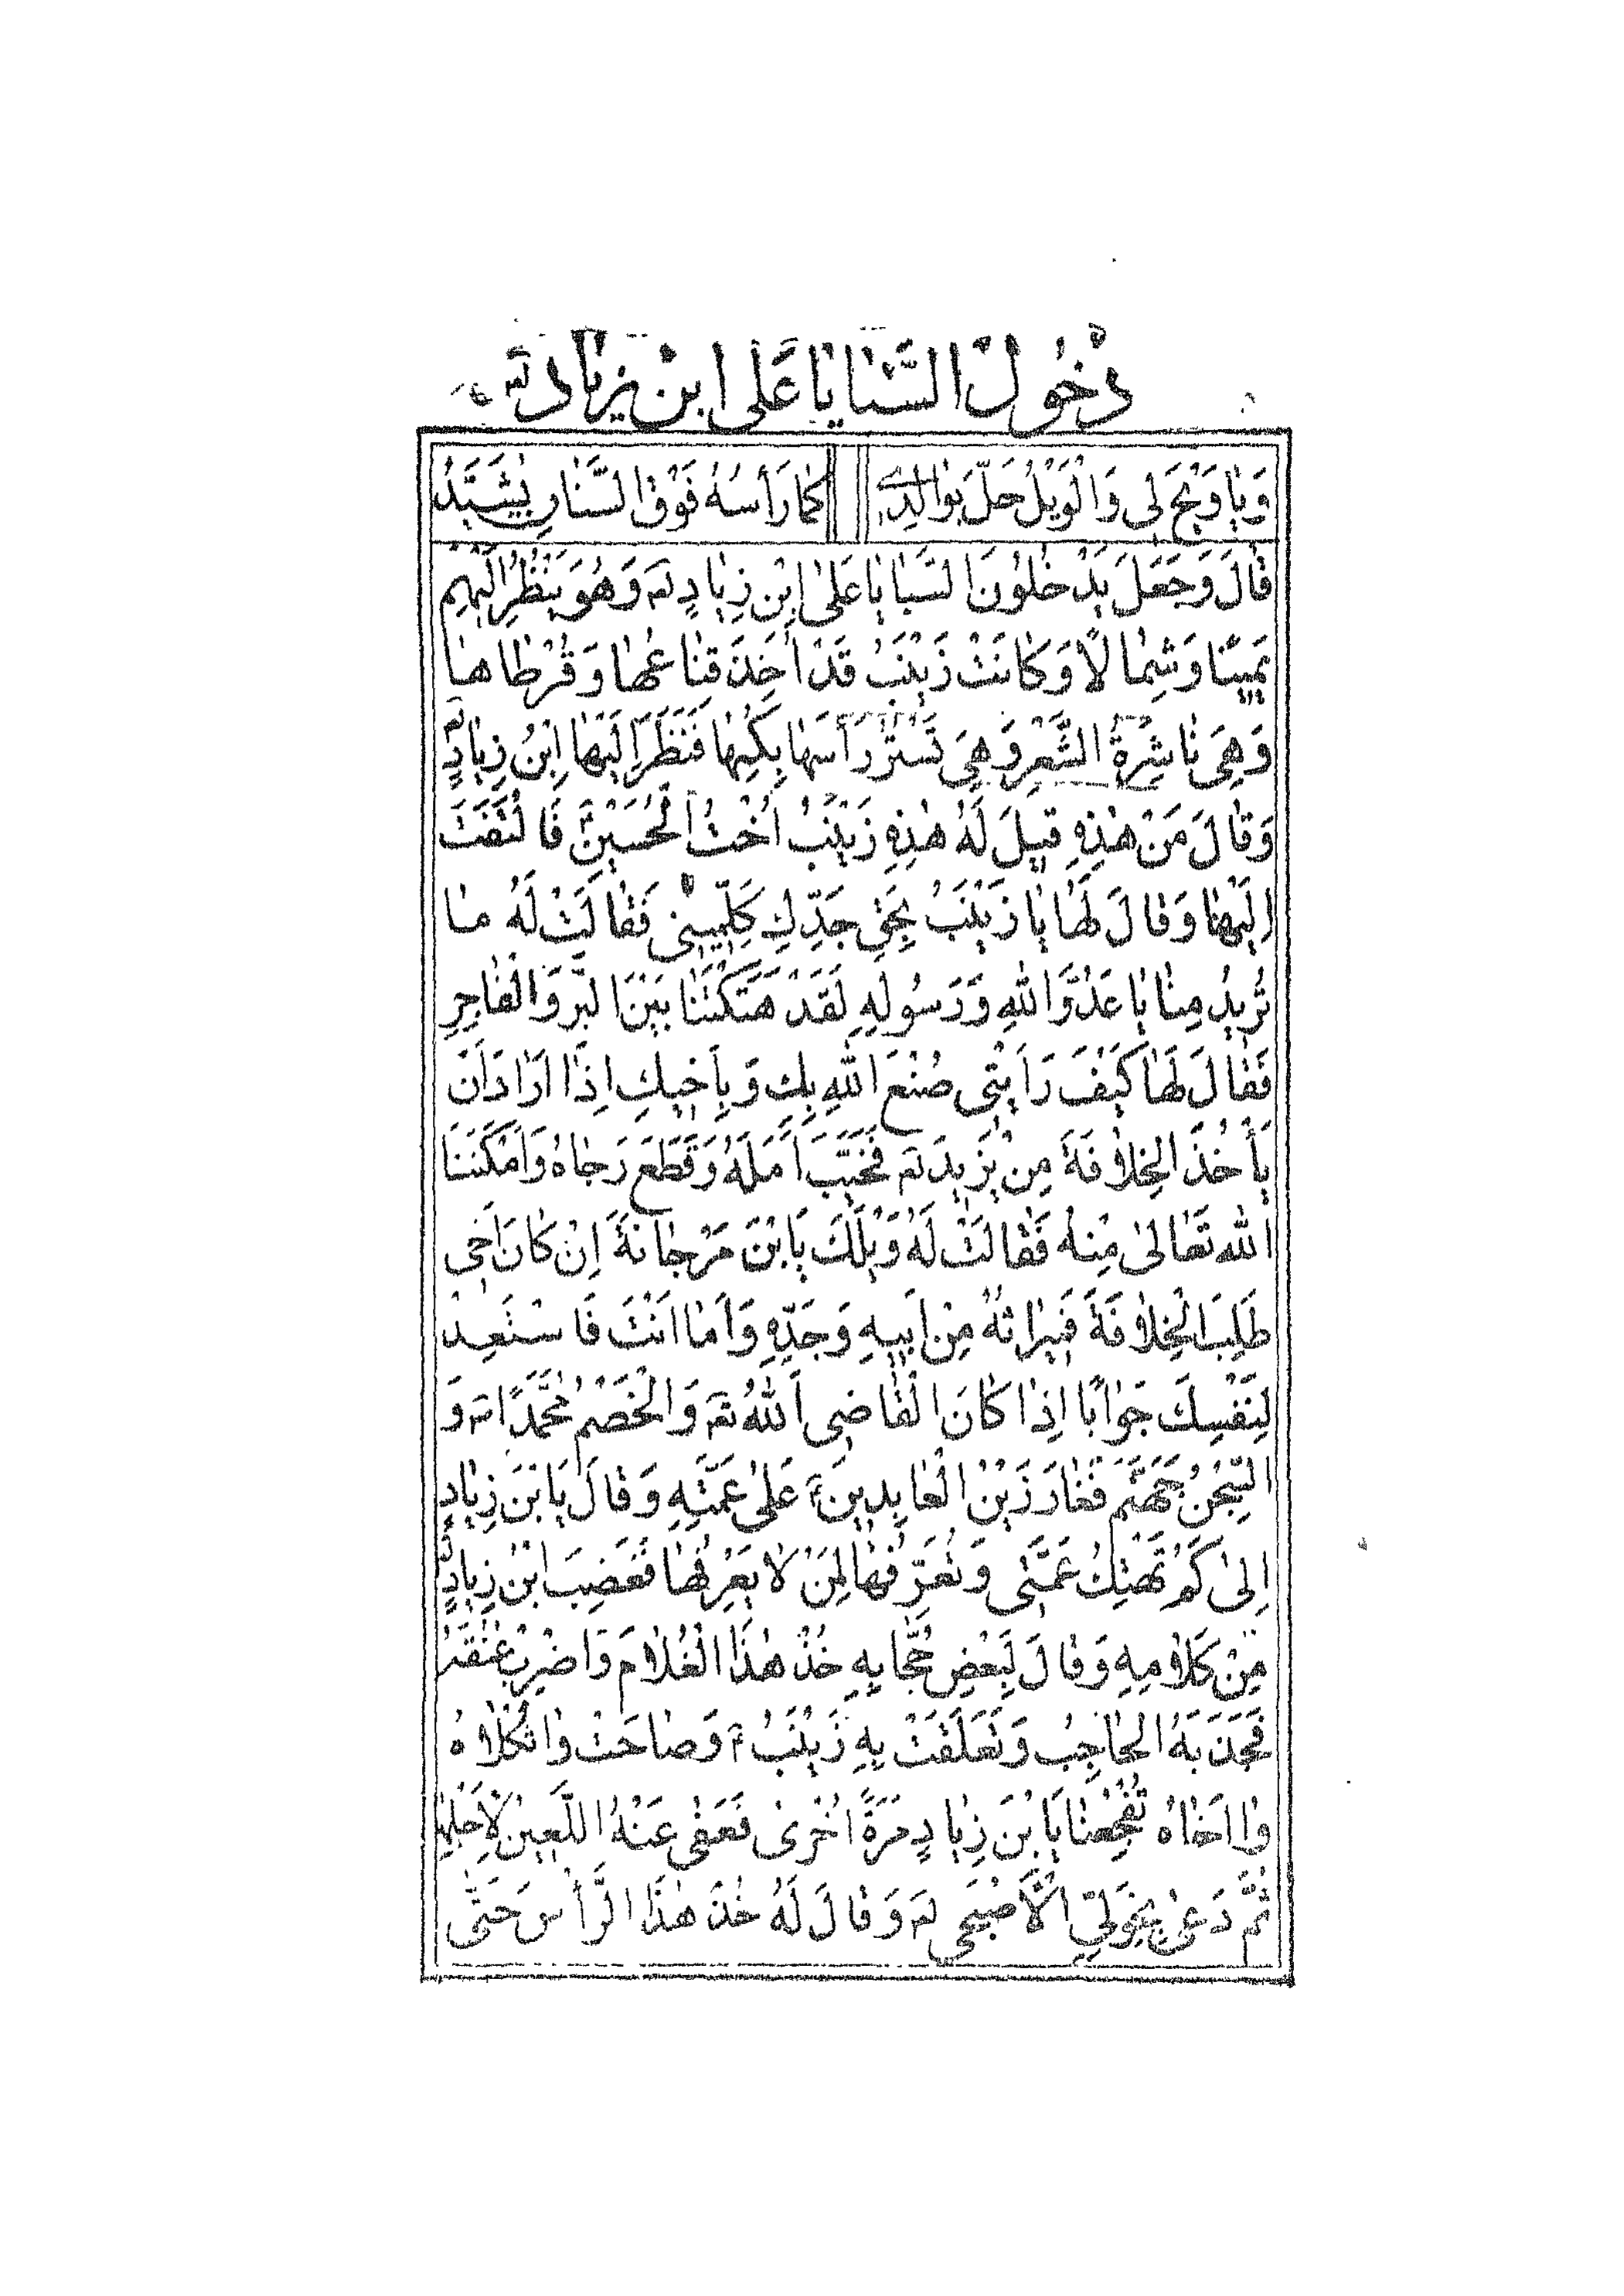 دخول السبايا على ابن زياد لعنه
وَيا وَيْحَ لي وَالْوَيْلُ حَلَّ بِوالِدي كَما رَأْسُهُ فَوْقَ السِّنانِ يُشَيَّدُ
قالَ وَجَعَلَ يَدْخُلُونَ السَّبايا عَلى ابْنِ زِيادٍ لعنه وَهُوَ يَنْظُرُ اِلَيْهِمْ
يَمينًا وَشِمالاً وَكانَتْ زَيْنَبُ قَدْ اُخِذَ قِناعُها وَقُرْطاها
وَهِيَ ناشِرَةُ الشَّعْرِ وَهِيَ تَسْتُرُ رَأْسَها بِكُمِّها فَنَظَرَ اِلَيْها ابْنُ زِيادٍ
وَقالَ مَنْ هٰذِهِ قيلَ لَهُ هٰذِهِ زَيْنَبُ اُخْتُ الْحُسَيْنِ فَالْتَفَتَ
اِلَيْها وَقالَ لَها يا زَيْنَبُ بِحَقِّ جَدِّكِ كَلِّميني فَقالَتْ لَهُ ما
تُريدُ مِنّا يا عَدُوَّ اللهِ وَرَسُولِهِ لَقَدْ هَتَكْتَنا بَيْنَ الْبَرِّ وَالْفاجِرِ
فَقالَ لَها كَيْفَ رَاَيْتي صُنْعَ اللهِ بِكِ وَبِاَخيكِ اِذا اَرادَ اَنْ
يَأْخُذَ الْخِلافَةَ مِنْ يَزيدَ لعنه فَخَيَّبَ اَمَلَهُ وَقَطَعَ رَجاهُ وَاَمْكَنَنا
اللهُ تَعالى مِنْهُ فَقالَتْ لَهُ وَيْلَكَ يَابْنَ مَرْجانَةَ اِنْ كانَ اَخي
طَلِبَ الْخِلافَةَ فَميراثُهُ مِنْ اَبيهِ وَجَدِّهِ وَاَمّا اَنْتَ فَاسْتَعِدْ
لِنَفْسِكَ جَوابًا اِذا كانَ الْقاضِي اَللهُ تع وَالْخَصْمُ مُحَمَّدًا ص وَ
السِّجْنُ جَهَنَّمَ فَغارَ زَيْنُ الْعابِدينَ ع عَلى عَمَّتِهِ وَقالَ يَابْنَ زِيادٍ
اِلى كَمْ تَهْتِكُ عَمَّتي وَتُعَرِّفُها لِمَنْ لا يَعْرِفُها فَغَضِبَ ابْنُ زِيادٍ
مِنْ كَلامِهِ وَقالَ لِبَعْضِ حُجّابِهِ خُذْ هٰذَا الْغُلامَ وَاضْرِبْ عُنُقَهُ
فَجَذَبَهُ الْحاجِبُ وَتَعَلَّقَتْ بِهِ زَيْنَبُ ع وَصاحَتْ واثُكْلاهُ
وااَخاهُ تُفْجِعُنا يَابْنَ زِيادٍ مَرَّةً اُخْرى فَعَفى عَنْهُ اللَّعينُ لِاَجْلِها
ثُمَّ دَعى بِخَوْلِيِّ الْاَصْبَحي لعنه وَقالَ لَهُ خُذْ هٰذَا الرَّأْسَ حَتّى